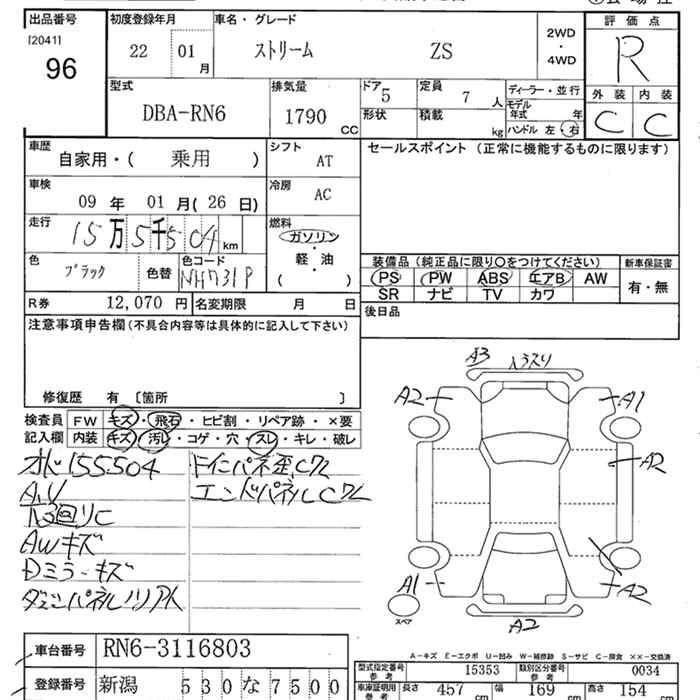 出品番号
[2041]
96
初度登録年月
22 01 月
車名・グレード
ストリーム ZS
2WD
・
4WD
評価点
R
外装 内装
C C
型式
DBA-RN6
排気量
1790 CC
ドア 5
定員 7 人
形状
積載 kg
ディーラー・並行
モデル年式 年
ハンドル 左・右
車歴
自家用・( 乗用 )
シフト
AT
セールスポイント (正常に機能するものに限ります)
車検
09 年 01 月( 26 日)
冷房
AC
走行
15万5千504 km
燃料
ガソリン
・
軽・油
( )
色
ブラック
色替
色コード
NH731P
装備品 (純正品に限り○をつけてください)
PS PW ABS エアB AW
SR ナビ TV カワ
新車保証書
有・無
R券 12,070 円 名変期限 月 日
後日品
注意事項申告欄(不具合内容等は具体的に記入して下さい)
修復歴 有 〔箇所 〕
検査員記入欄
FW キズ・飛石・ヒビ割・リペア跡・×要
内装 キズ・汚レ・コゲ・穴・スレ・キレ・破レ
155504
AWキズ
Dミラーキズ
エンドパネルC
A3
A2 A1
A2
A1 A2
A2
スペア
車台番号 RN6-3116803
登録番号 新潟 530な7500
A-キズ E-エクボ U-凹み W-補修跡 S-サビ C-腐食 ××-交換済
型式指定番号 参考 15353 類別区分番号 参考 0034
車庫証明用 参考 長さ 457 cm 幅 169 cm 高さ 154 cm